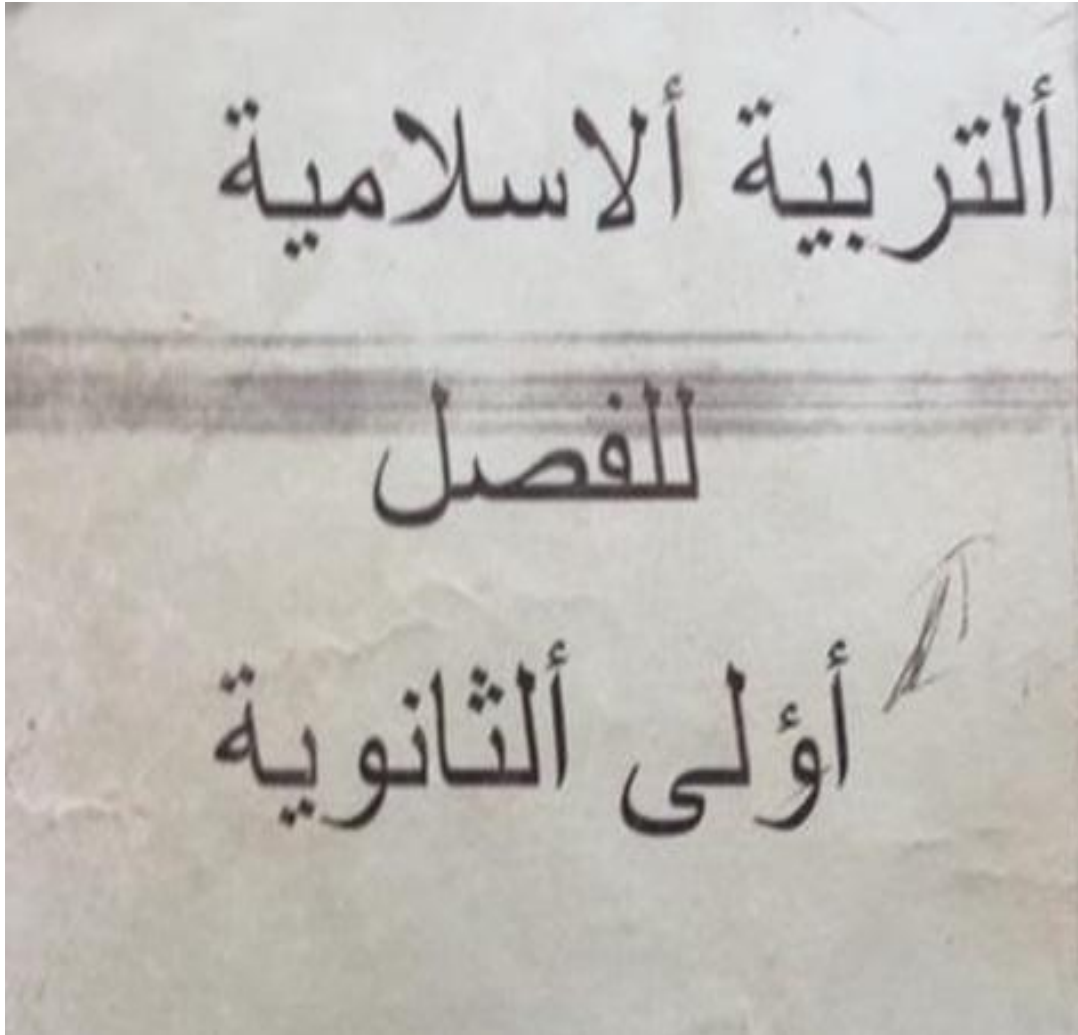 ألتربية ألاسلامية
للفصل
أؤلى ألثانوية